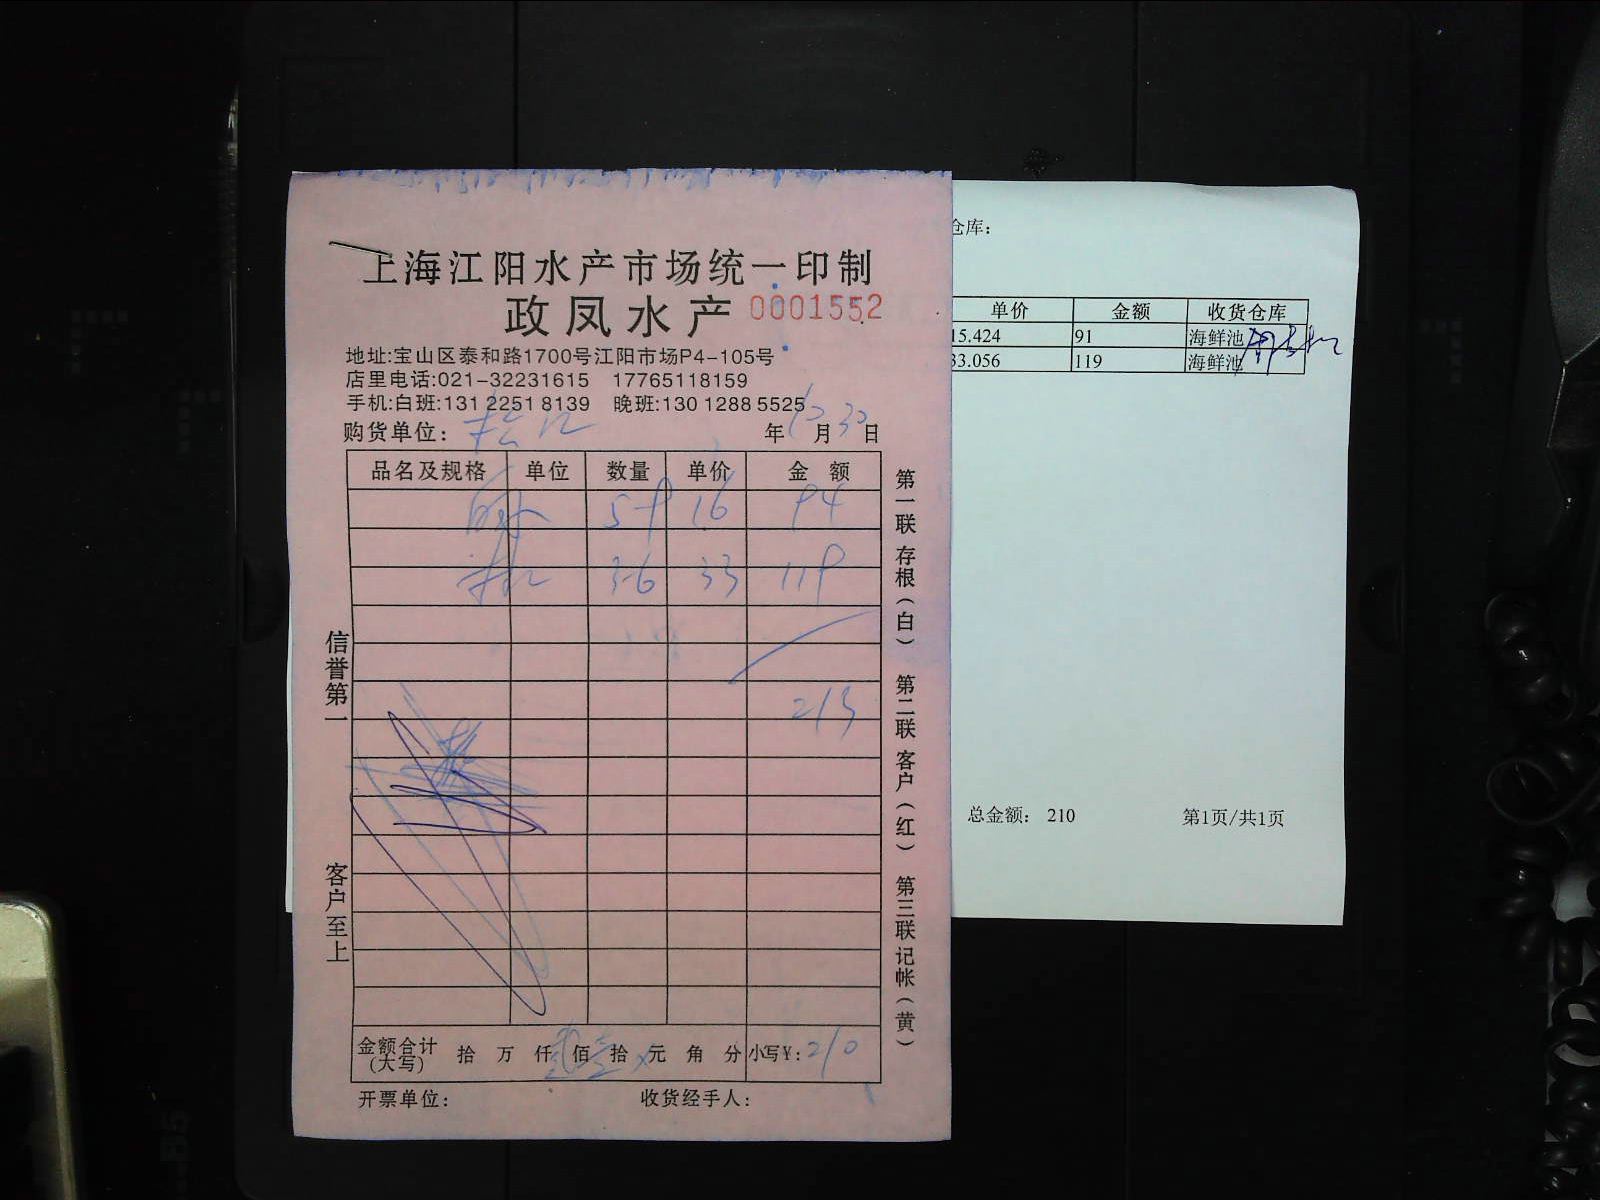 上海江阳水产市场统一印制
政凤水产 0001552
地址:宝山区泰和路1700号江阳市场P4-105号
店里电话:021-32231615 17765118159
手机:白班:131 2251 8139 晚班:130 1288 5525
购货单位: 年10月30日
品名及规格 单位 数量 单价 金 额
59 16 94
36 33 119
213
金额合计(大写) 拾 万 仟 佰 拾 元 角 分 小写¥: 210
开票单位: 收货经手人:
信誉第一
客户至上
第一联 存根(白) 第二联 客户(红) 第三联 记帐(黄)
仓库:
单价 金额 收货仓库
15.424 91 海鲜池
33.056 119 海鲜池
总金额: 210 第1页/共1页